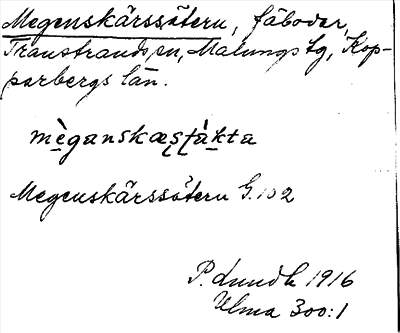 Megenskärssätern, fäbodar,
Transtrands sn, Malungs tg, Kop-
parbergs län.
Megenskärssätern G.102
P. Lundh 1916
Ulma 300:1